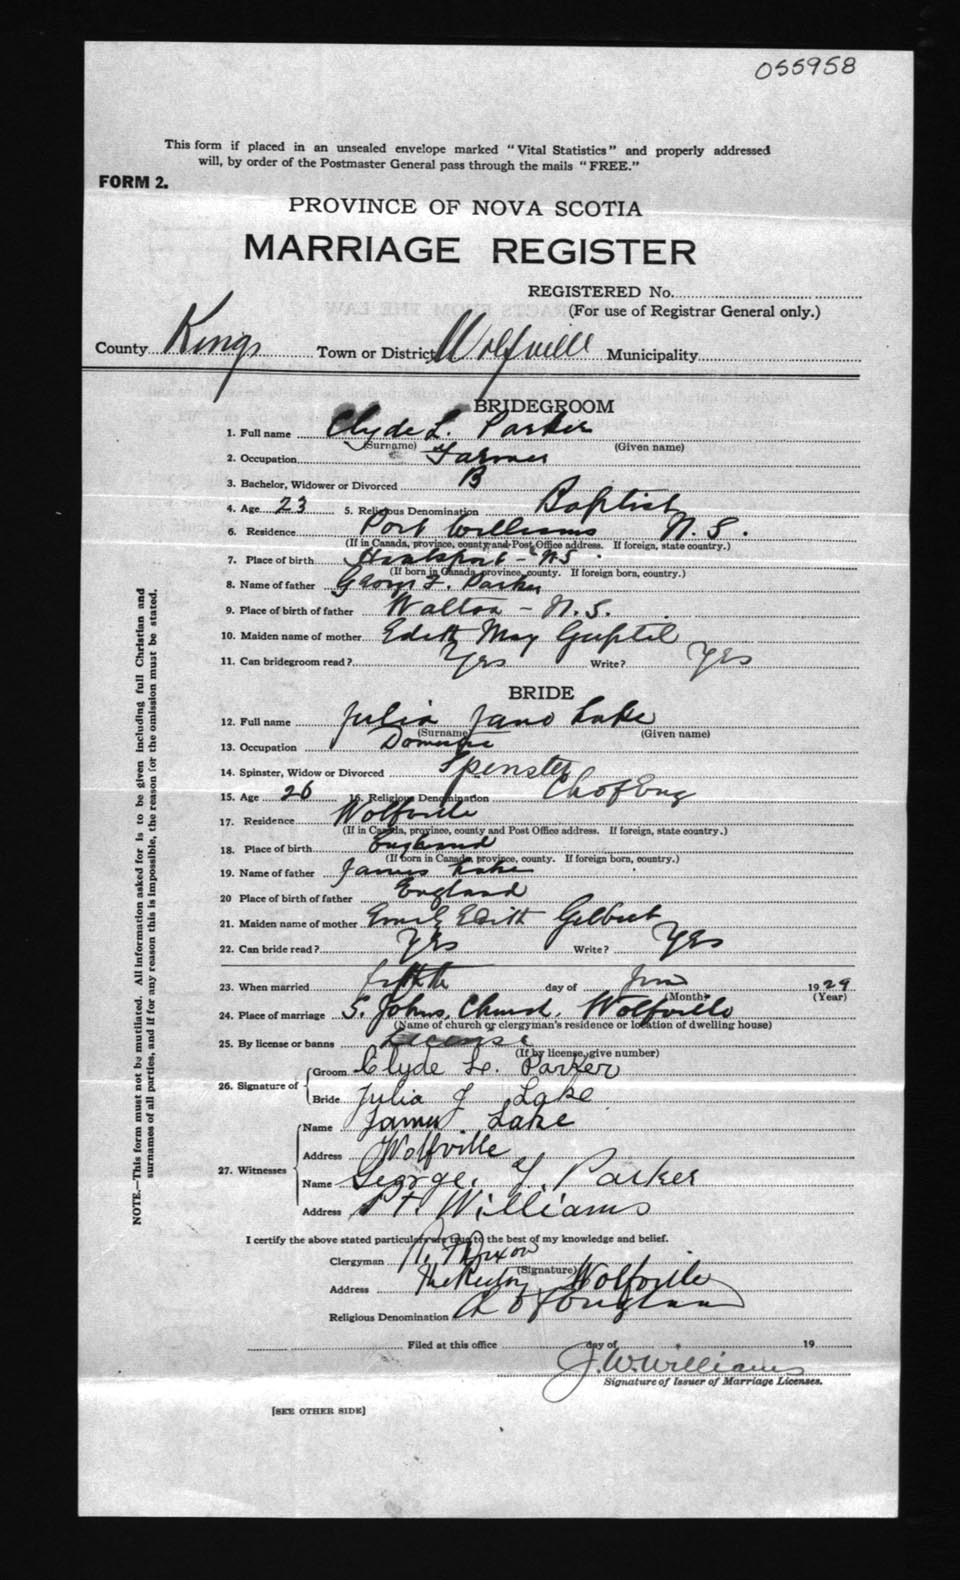 055958
This form if placed in an unsealed envelope marked "Vital Statistics" and properly addressed
will, by order of the Postmaster General pass through the mails "FREE."
FORM 2.
PROVINCE OF NOVA SCOTIA
MARRIAGE REGISTER
REGISTERED No.
(For use of Registrar General only.)
County Kings Town or District Wolfville Municipality
BRIDEGROOM
1. Full name Clyde L. Parker
(Surname) (Given name)
2. Occupation Farmer
3. Bachelor, Widower or Divorced B
4. Age 23 5. Religious Denomination Baptist
6. Residence Port Williams N.S.
(If in Canada, province, county and Post Office address. If foreign, state country.)
7. Place of birth Hantsport - NS
(If born in Canada, province, county. If foreign born, country.)
8. Name of father Parker
9. Place of birth of father Walton - N.S.
10. Maiden name of mother Edith May Guptil
11. Can bridegroom read? Yes Write? Yes
BRIDE
12. Full name Julia Jane Lake
(Surname) (Given name)
13. Occupation Domestic
14. Spinster, Widow or Divorced Spenster
15. Age 26 16. Religious Denomination Ch of Eng
17. Residence Wolfville
(If in Canada, province, county and Post Office address. If foreign, state country.)
18. Place of birth England
(If born in Canada, province, county. If foreign born, country.)
19. Name of father James Lake
20 Place of birth of father England
21. Maiden name of mother Emily Edith Gilbert
22. Can bride read? Yes Write? Yes
23. When married day of 1929
(Month) (Year)
24. Place of marriage S. Johns. Church. Wolfville
(Name of church or clergyman's residence or location of dwelling house)
25. By license or banns License
(If by license, give number)
26. Signature of Groom Clyde L. Parker
Bride Julia J Lake
27. Witnesses Name James Lake
Address Wolfville
Name George. Parker
Address Pt. Williams
I certify the above stated particulars are true to the best of my knowledge and belief.
Clergyman Dixon
(Signature)
Address The Rectory Wolfville
Religious Denomination Ch of England
Filed at this office day of 19
J.W. Williams
Signature of Issuer of Marriage Licenses.
[SEE OTHER SIDE]
NOTE.—This form must not be mutilated. All information asked for is to be given including full Christian and
surnames of all parties, and if for any reason this is impossible, the reason for the omission must be stated.